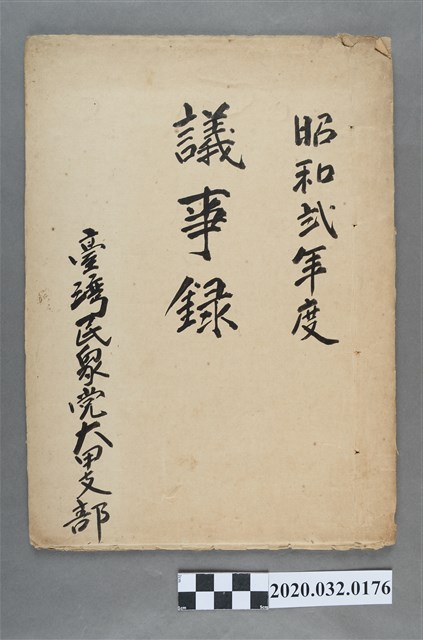 昭和弍年度
議事録
臺灣民眾党大甲支部
2020.032.0176